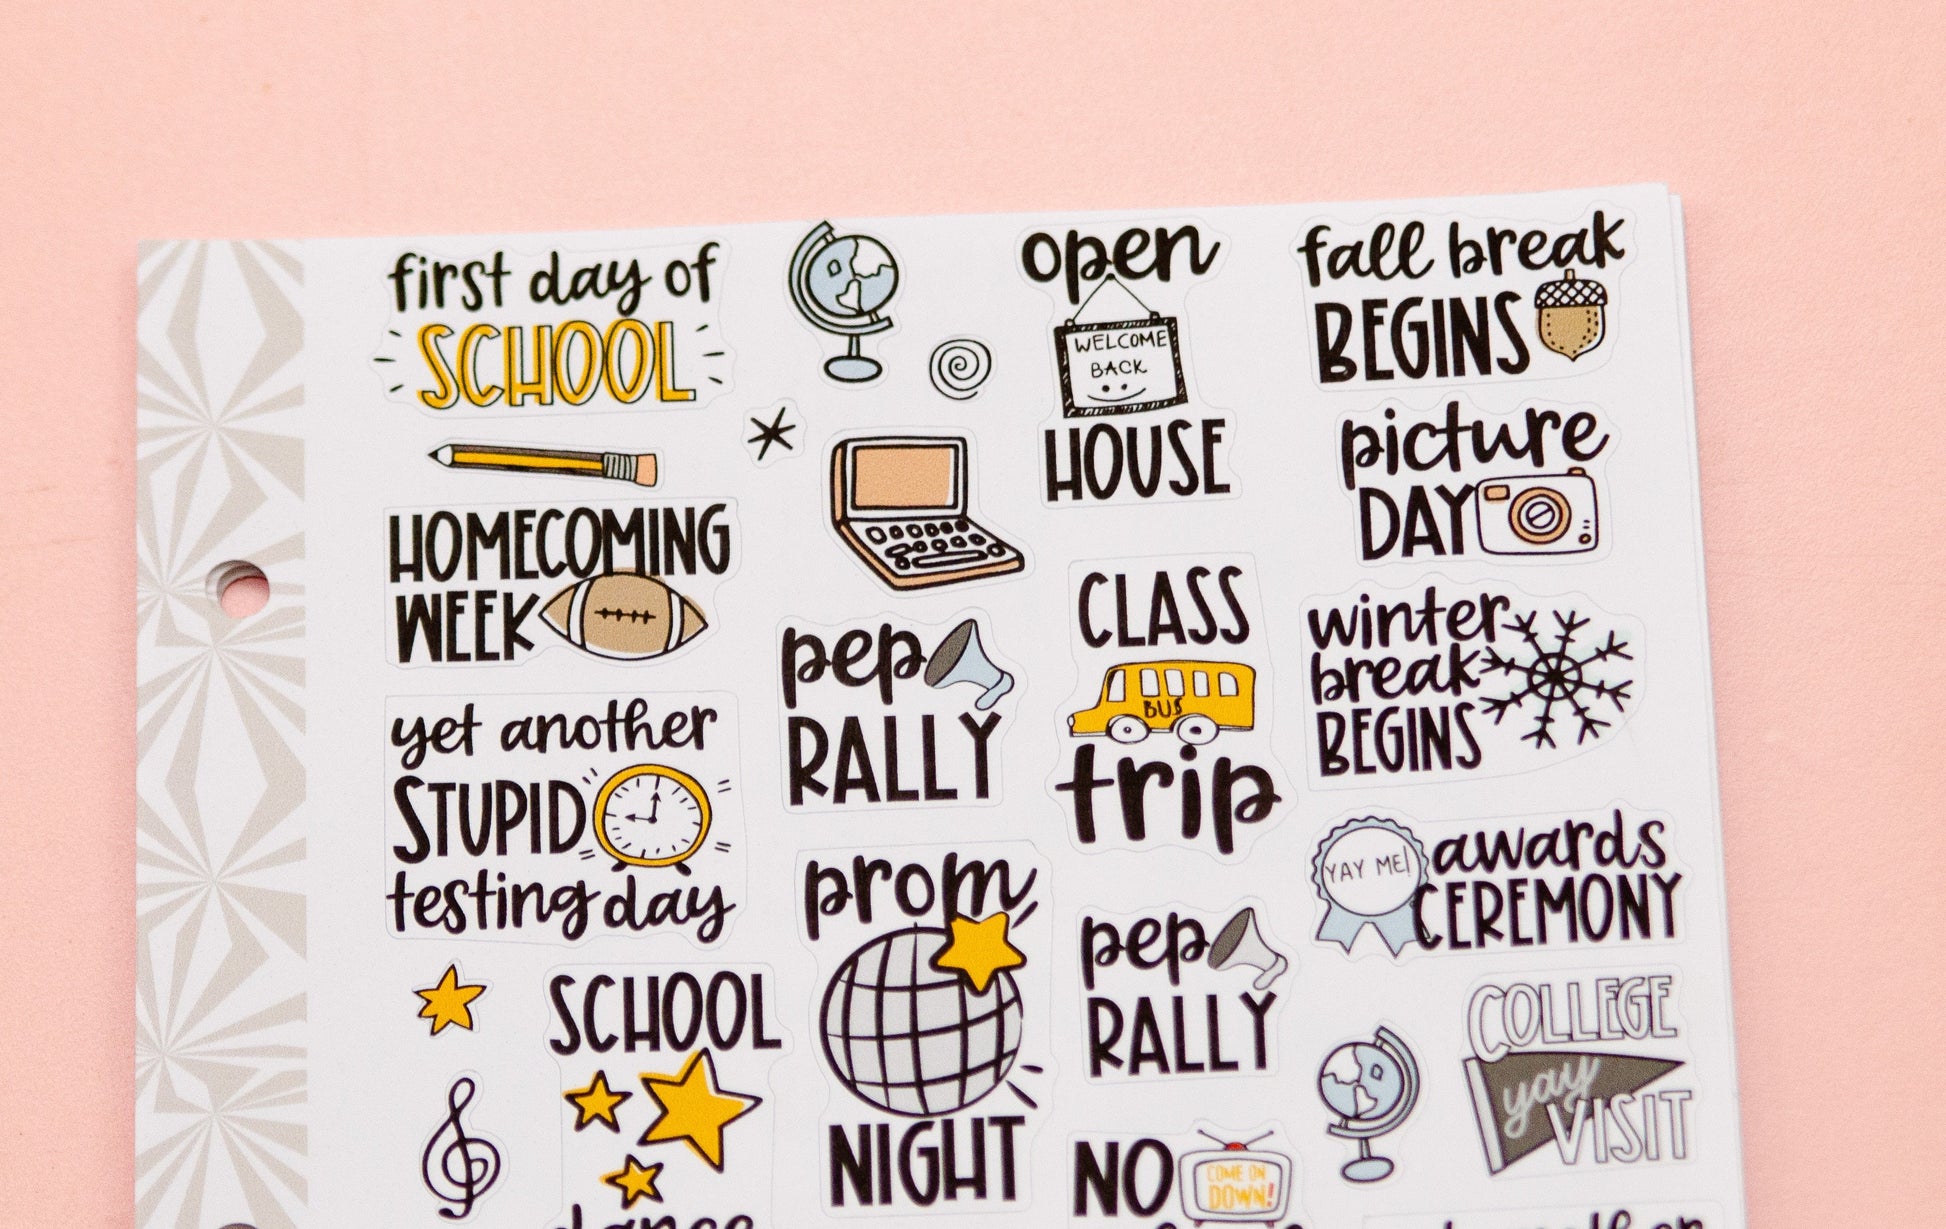 first day of
SCHOOL
HOMECOMING
WEEK
yet another
STUPID
testing day
SCHOOL
dance
pep
RALLY
prom
NIGHT
open
WELCOME
BACK
HOUSE
CLASS
BUS
trip
pep
RALLY
NO
COME ON
DOWN!
fall break
BEGINS
picture
DAY
winter
break
BEGINS
YAY ME!
awards
CEREMONY
COLLEGE
yay
VISIT